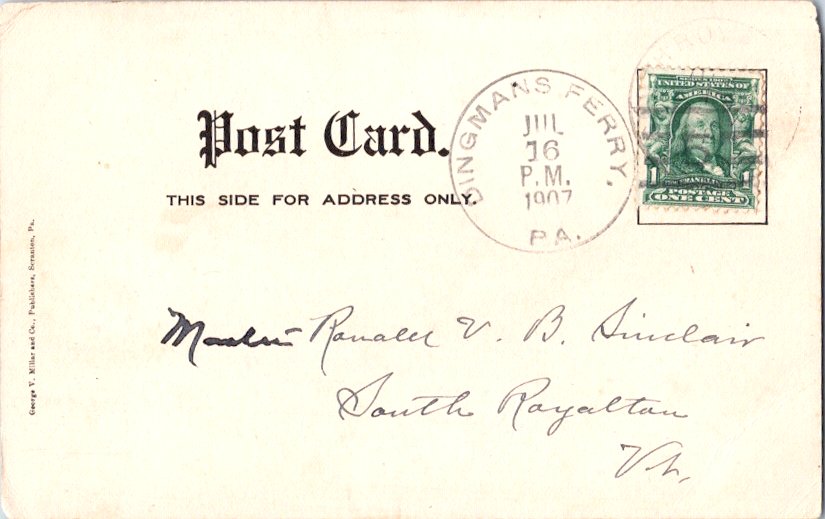 Post Card.
THIS SIDE FOR ADDRESS ONLY.
DINGMANS FERRY,
JUL
16
P.M.
1907
PA.
SERIES 1902
UNITED STATES OF
AMERICA
FRANKLIN
1 1
POSTAGE
ONE CENT
Master Ronald V. B. Sinclair
South Royalton
Vt.
George V. Millar and Co., Publishers, Scranton, Pa.